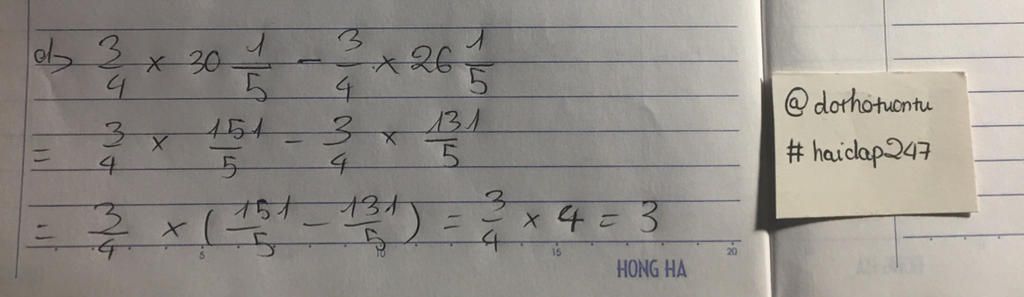 d) 3/4 × 30 1/5 - 3/4 × 26 1/5
= 3/4 × 151/5 - 3/4 × 131/5
= 3/4 × (151/5 - 131/5) = 3/4 × 4 = 3
5 10 15 20
HONG HA
@dorhotuontu
#haidap247
HONG HA